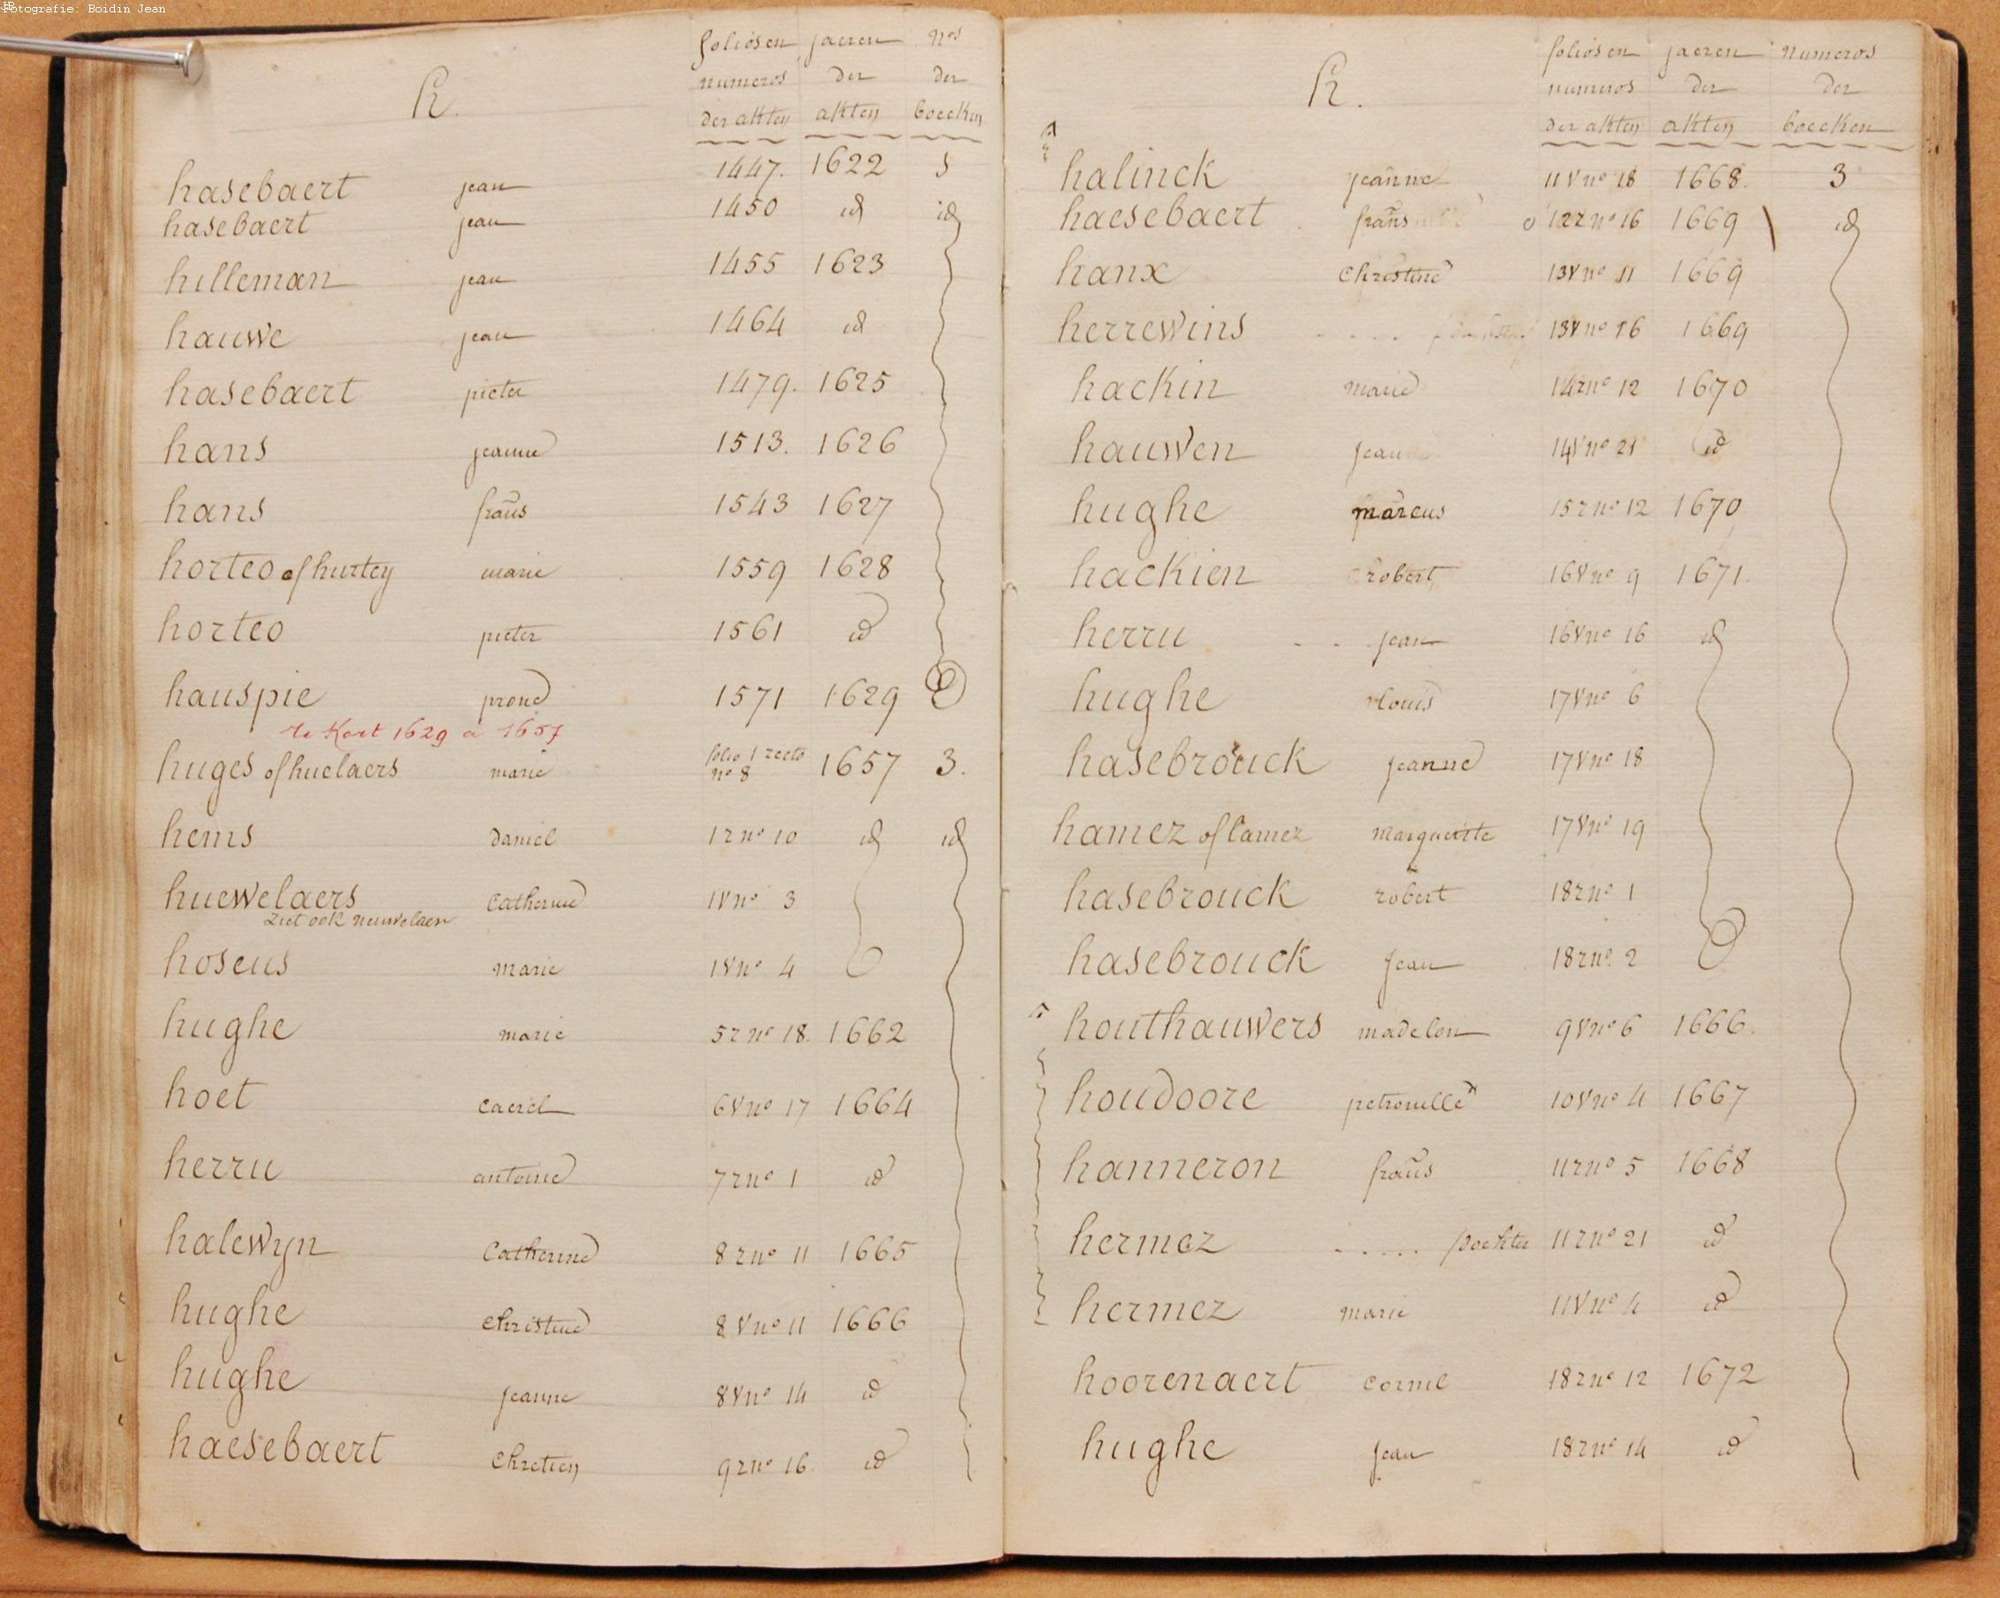 Fotografie: Boidin Jean
h. folios en jaeren nos
numeros der der
der akten akten boecken
hasebaert jean 1447. 1622 S
hasebaert jean 1450 id id
hilleman jean 1455 1623
hauwe jean 1464 id
hasebaert pieter 1479. 1625
hans jeanne 1513. 1626
hans frans 1543 1627
horteo of hurtey marie 1559 1628
horteo pieter 1561 id
hauspie 1571 1629
te Kort 1629 a 1657
huges of huelaers marie folio 1 recto no 8 1657 3.
hems daniel 1 r no 10 id id
huewelaers Catherine 1 v no 3
ziet ook neuwelaers
hoseus marie 1 v no 4
hughe marie 5 r no 18. 1662
hoet Caerel 6 v no 17 1664
herru antoine 7 r no 1 id
halewyn Catherine 8 r no 11 1665
hughe Christine 8 v no 11 1666
hughe jeanne 8 v no 14 id
haesebaert Chretien 9 r no 16 id
h. folios en jaeren numeros
numeros der der
der akten akten boecken
halinck jeanne 11 v no 18 1668. 3
haesebaert frans 12 r no 16 1669 id
hanx Christine 13 v no 11 1669
herrewins 13 v no 16 1669
hackin marie 14 r no 12 1670
hauwen jean 14 v no 21 id
hughe marcus 15 r no 12 1670
hackien robert 16 v no 9 1671.
herru jean 16 v no 16 id
hughe louis 17 v no 6
hasebrouck jeanne 17 v no 18
hamez of lamez marguerite 17 v no 19
hasebrouck robert 18 r no 1
hasebrouck jean 18 r no 2
houthauwers madelen 9 v no 6 1666.
houdoore petronelle 10 v no 4 1667
hanneron frans 11 r no 5 1668
hermez ..... pochter 11 r no 21 id
hermez marie 11 v no 4 id
hoorenaert Cornil 18 r no 12 1672
hughe jean 18 r no 14 id